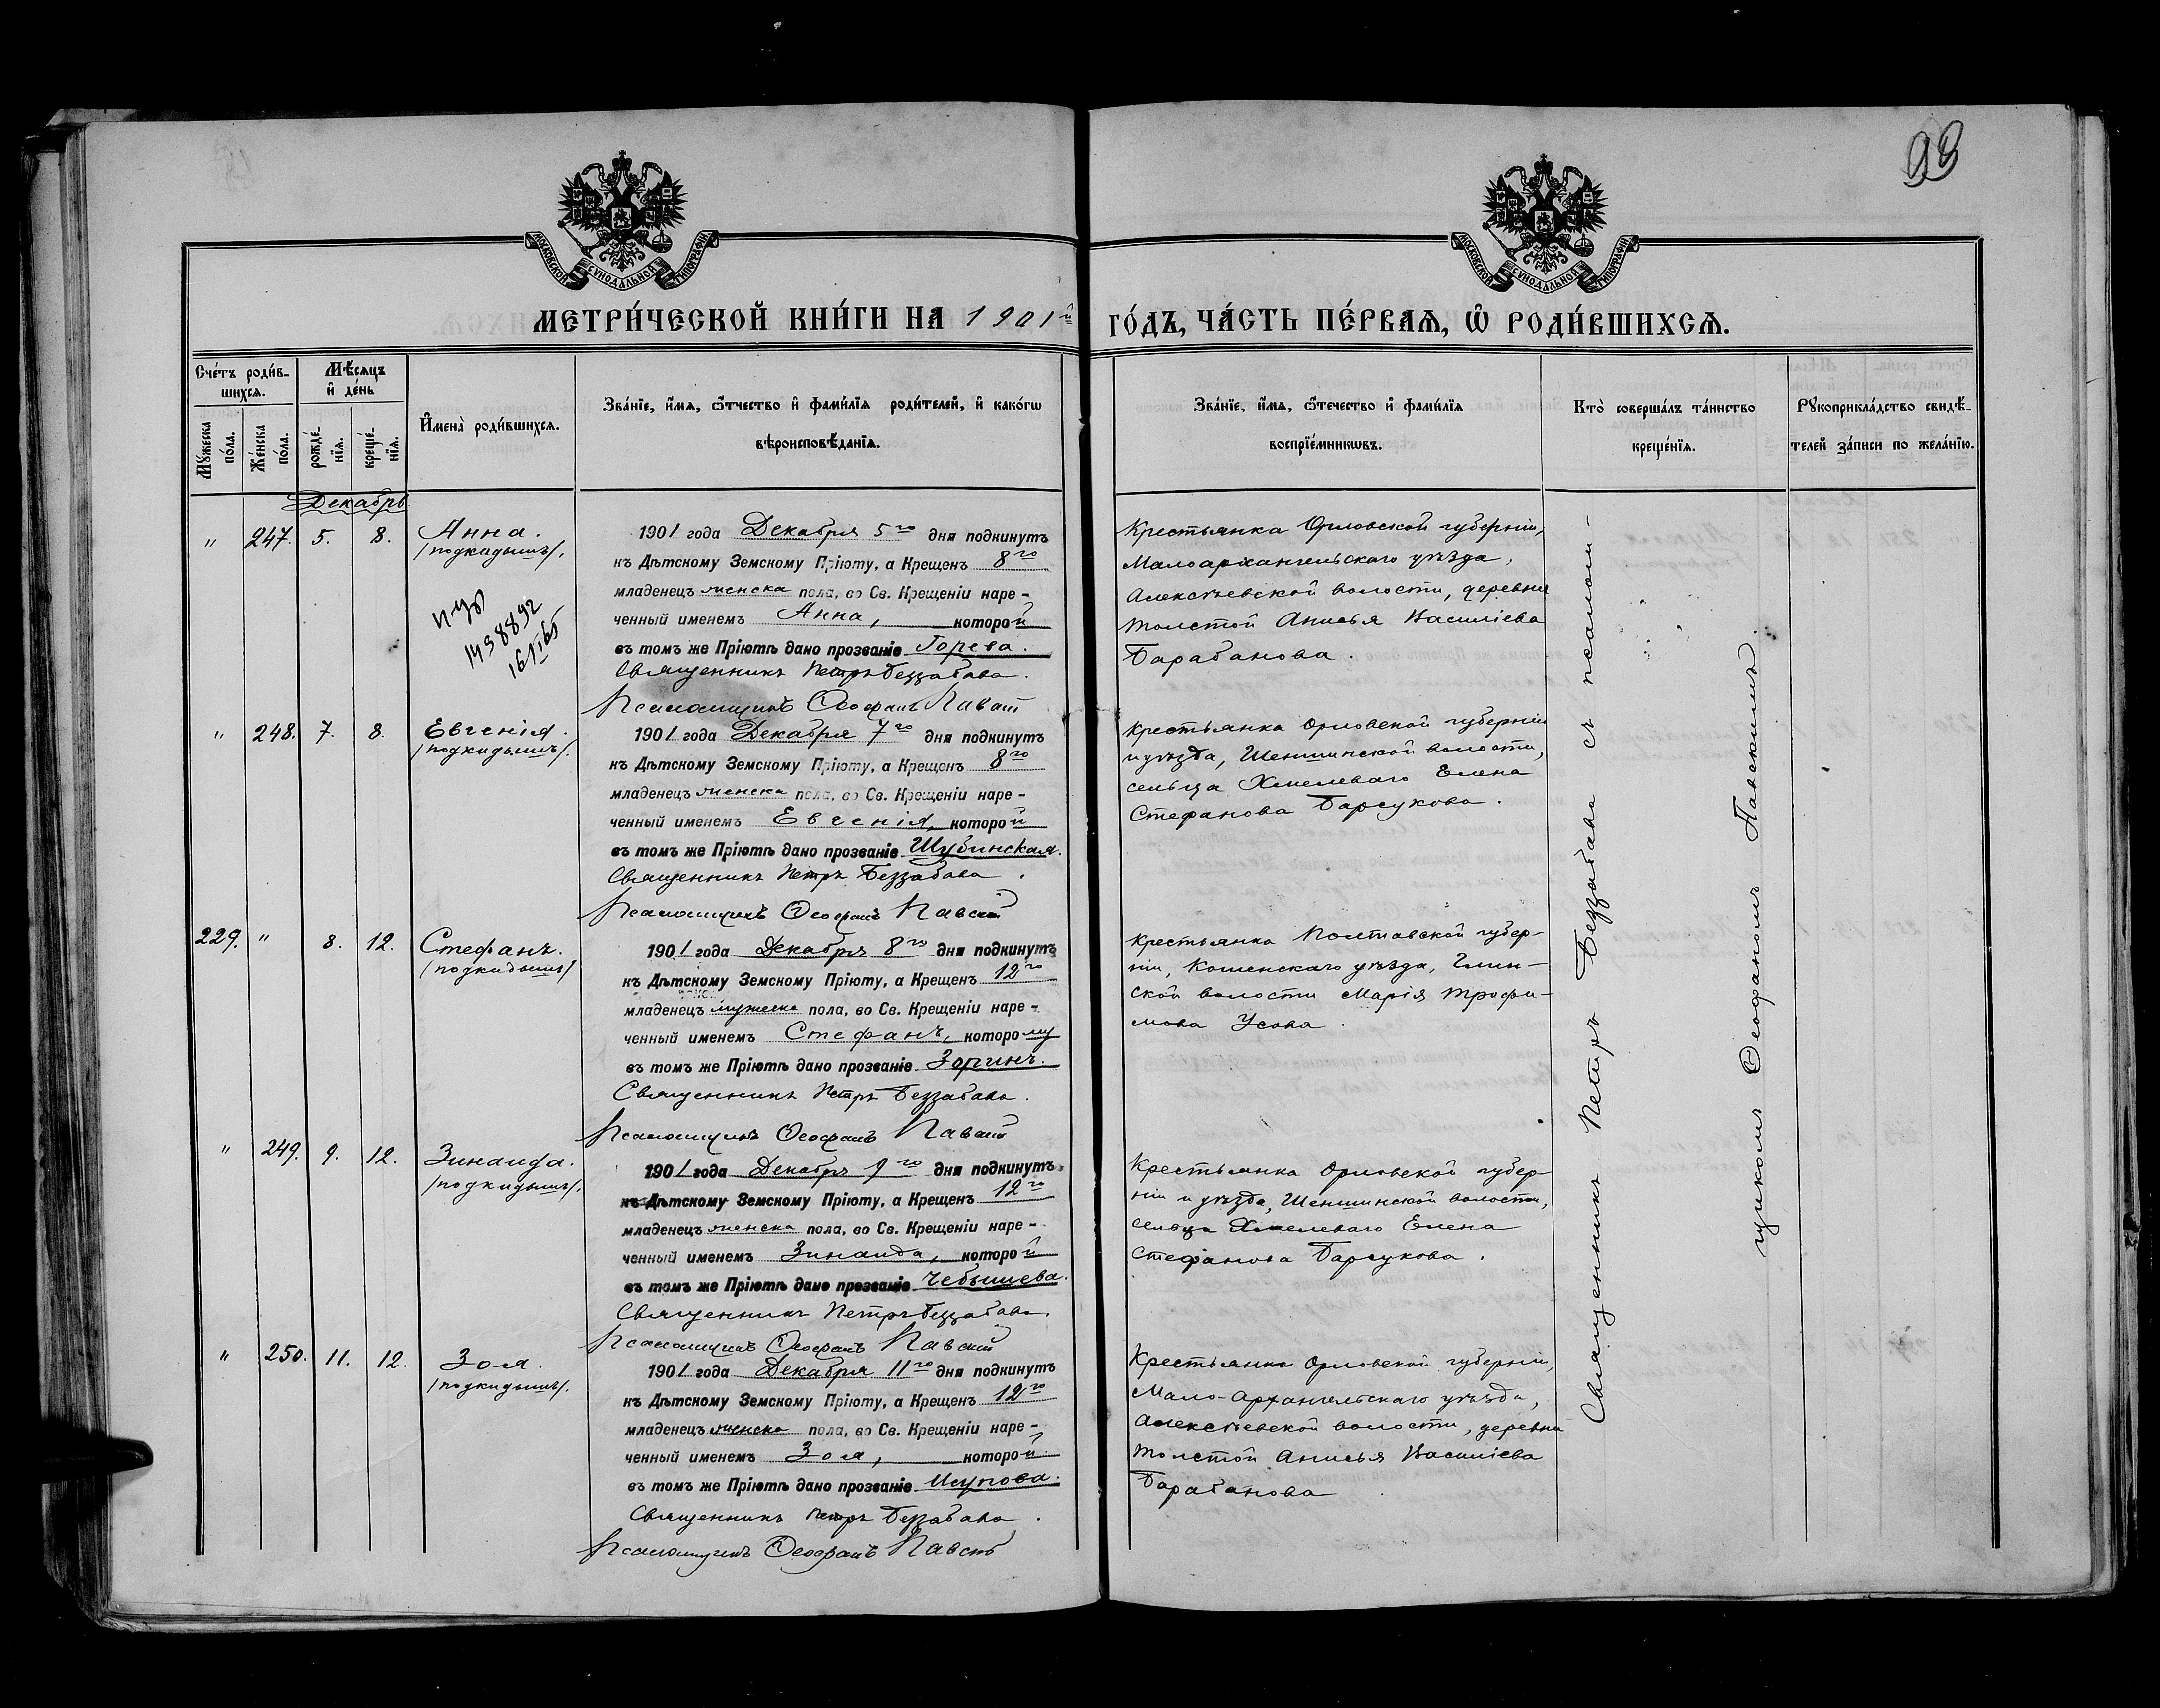 93
МОСКОВСКОЙ СѴНОДАЛЬНОЙ ТИПОГРАФІИ
МОСКОВСКОЙ СѴНОДАЛЬНОЙ ТИПОГРАФІИ
МЕТРИ́ЧЕСКОЙ КНИ́ГИ НА 1901й ГО́ДЪ, ЧА́СТЬ ПЕ́РВАѦ, Ѽ РОДИ́ВШИХСѦ.
Сче́тъ роди́в-
шихсѧ.
Мѣ́сѧцъ
и҆ де́нь
Мꙋ́жеска
по́ла.
Же́нска
по́ла.
рожде́-
нїѧ.
креще́-
нїѧ.
И҆мена̀ роди́вшихсѧ.
Зва́нїе, и҆́мѧ, ѻ҆́тчество и҆ фами́лїѧ роди́телей, и҆ како́гѡ
вѣроисповѣ́данїѧ.
Зва́нїе, и҆́мѧ, ѻ҆те́чество и҆ фами́лїѧ
воспрїе́мникѡвъ.
Кто̀ соверша́лъ та́инство
креще́нїѧ.
Рꙋкоприкла́дство свидѣ́-
телей за́писи по жела́нїю.
Декабрь
" 247. 5. 8. Анна.
/подкидышъ/.
1498892
1901 года Декабря 5го дня подкинутъ
къ Дѣтскому Земскому Пріюту, а Крещенъ 8го
младенецъ женска пола, во Св. Крещеніи наре-
ченный именемъ Анна, которой
въ томъ же Пріютѣ дано прозваніе Горева.
Священникъ Петръ Беззабава.
Псаломщикъ Ѳеофанъ Павскій
Крестьянка Орловской губерніи,
Малоархангельскаго уѣзда,
Алексѣевской волости, деревни
Толстой Анисья Василіева
Барабанова.
" 248. 7. 8. Евгенія.
/подкидышъ/.
1901 года Декабря 7го дня подкинутъ
къ Дѣтскому Земскому Пріюту, а Крещенъ 8го
младенецъ женска пола, во Св. Крещеніи наре-
ченный именемъ Евгенія, которой
въ томъ же Пріютѣ дано прозваніе Шубинская.
Священникъ Петръ Беззабава.
Псаломщикъ Ѳеофанъ Павскій
Крестьянка Орловской губерніи
и уѣзда, Шеншинской волости,
сельца Хмелеваго Елена
Стефанова Барсукова.
229. " 8. 12. Стефанъ.
/подкидышъ/
1901 года Декабря 8го дня подкинутъ
къ Дѣтскому Земскому Пріюту, а Крещенъ 12го
младенецъ мужеска пола, во Св. Крещеніи наре-
ченный именемъ Стефанъ, которому
въ томъ же Пріютѣ дано прозваніе Зоринъ.
Священникъ Петръ Беззабава.
Псаломщикъ Ѳеофанъ Павскій
Крестьянка Полтавской губер-
ніи, уѣзда, Глин-
ской волости Марія Трофи-
мова Усова.
" 249. 9. 12. Зинаида.
/подкидышъ/.
1901 года Декабря 9го дня подкинутъ
къ Дѣтскому Земскому Пріюту, а Крещенъ 12го
младенецъ женска пола, во Св. Крещеніи наре-
ченный именемъ Зинаида, которой
въ томъ же Пріютѣ дано прозваніе Чебышева.
Священникъ Петръ Беззабава.
Псаломщикъ Ѳеофанъ Павскій
Крестьянка Орловской губер-
ніи и уѣзда, Шеншинской волости,
сельца Хмелеваго Елена
Стефанова Барсукова.
" 250. 11. 12. Зоя.
/подкидышъ/.
1901 года Декабря 11го дня подкинутъ
къ Дѣтскому Земскому Пріюту, а Крещенъ 12го
младенецъ женска пола, во Св. Крещеніи наре-
ченный именемъ Зоя, которой
въ томъ же Пріютѣ дано прозваніе
Священникъ Петръ Беззабава.
Псаломщикъ Ѳеофанъ Павскій
Крестьянка Орловской губерніи,
Мало-Архангельскаго уѣзда,
Алексѣевской волости, деревни
Толстой Анисья Василіева
Барабанова
Священникъ Петръ Беззабава съ псалом-
щикомъ Ѳеофаномъ Павскимъ.